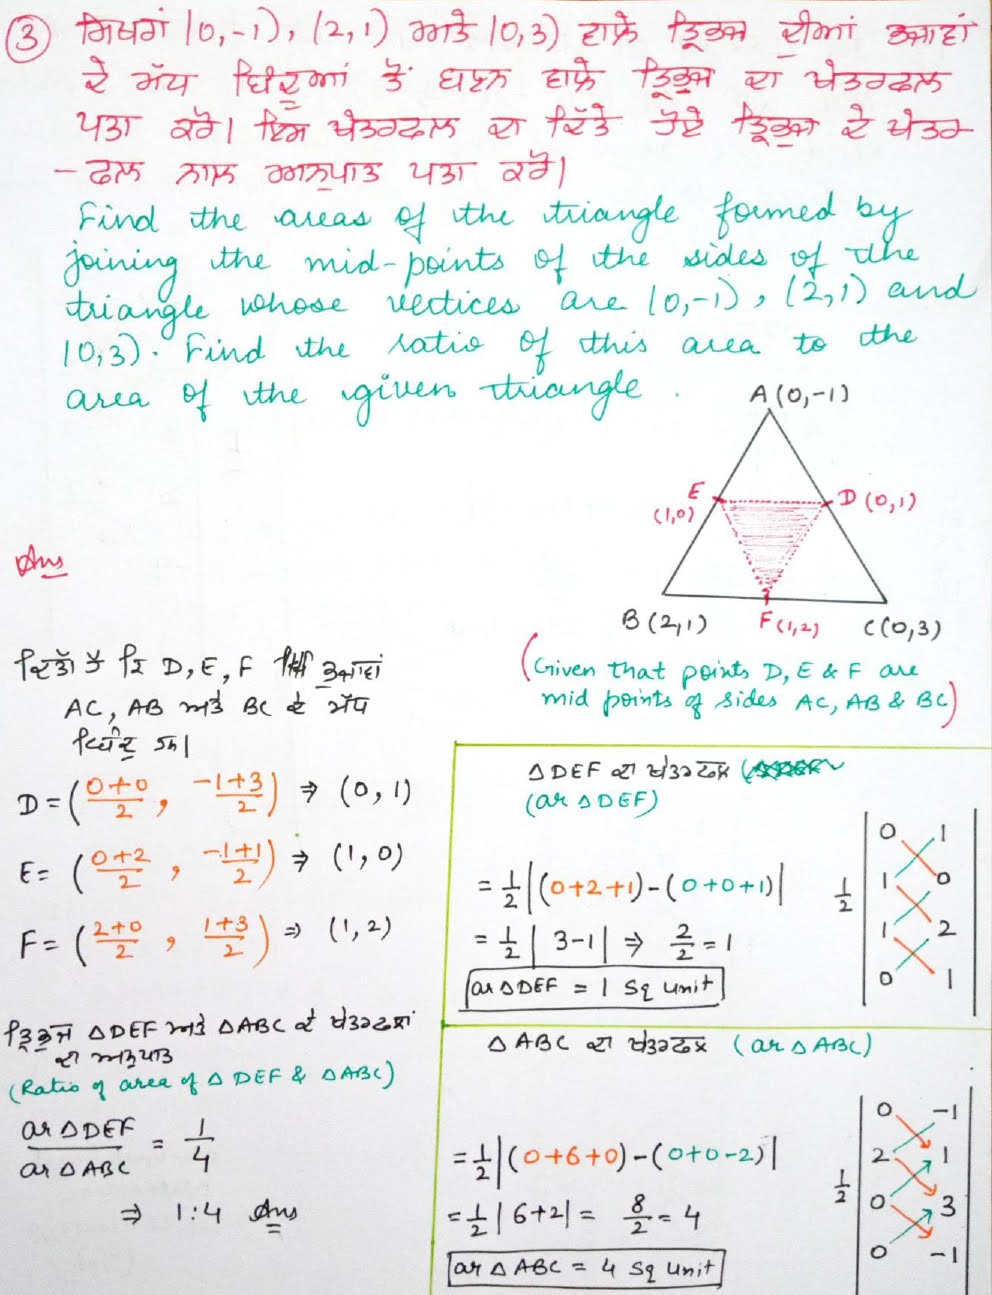 ③ ਸਿਖਰਾਂ (0,-1), (2,1) ਅਤੇ (0,3) ਵਾਲੇ ਤ੍ਰਿਭੁਜ ਦੀਆਂ ਭੁਜਾਵਾਂ
ਦੇ ਮੱਧ ਬਿੰਦੂਆਂ ਤੋਂ ਬਣਨ ਵਾਲੇ ਤ੍ਰਿਭੁਜ ਦਾ ਖੇਤਰਫਲ
ਪਤਾ ਕਰੋ। ਇਸ ਖੇਤਰਫਲ ਦਾ ਦਿੱਤੇ ਹੋਏ ਤ੍ਰਿਭੁਜ ਦੇ ਖੇਤਰ
-ਫਲ ਨਾਲ ਅਨੁਪਾਤ ਪਤਾ ਕਰੋ।
Find the areas of the triangle formed by
joining the mid-points of the sides of the
triangle whose vertices are (0,-1), (2,1) and
(0,3). Find the ratio of this area to the
area of the given triangle.
A(0,-1)
E
(1,0)
D(0,1)
B(2,1)
F(1,2)
C(0,3)
Ans
(Given that points D, E & F are
mid points of sides AC, AB & BC)
ਦਿੱਤਾ ਹੈ ਕਿ D, E, F ਭੁਜਾਵਾਂ
AC, AB ਅਤੇ BC ਦੇ ਮੱਧ
ਬਿੰਦੂ ਹਨ।
D = ((0+0)/2, (-1+3)/2) ⇒ (0, 1)
E = ((0+2)/2, (-1+1)/2) ⇒ (1, 0)
F = ((2+0)/2, (1+3)/2) ⇒ (1, 2)
ਤ੍ਰਿਭੁਜ ΔDEF ਅਤੇ ΔABC ਦੇ ਖੇਤਰਫਲਾਂ
ਦਾ ਅਨੁਪਾਤ
(Ratio of area of Δ DEF & ΔABC)
ar ΔDEF / ar ΔABC = 1/4
⇒ 1:4 Ans
ΔDEF ਦਾ ਖੇਤਰਫਲ
(ar Δ DEF)
= 1/2 |(0+2+1)-(0+0+1)|
= 1/2 | 3-1| ⇒ 2/2 = 1
ar ΔDEF = 1 sq unit
1/2
0 1
1 0
1 2
0 1
Δ ABC ਦਾ ਖੇਤਰਫਲ (ar Δ ABC)
= 1/2 |(0+6+0)-(0+0-2)|
= 1/2 | 6+2| = 8/2 = 4
ar Δ ABC = 4 sq unit
1/2
0 -1
2 1
0 3
0 -1